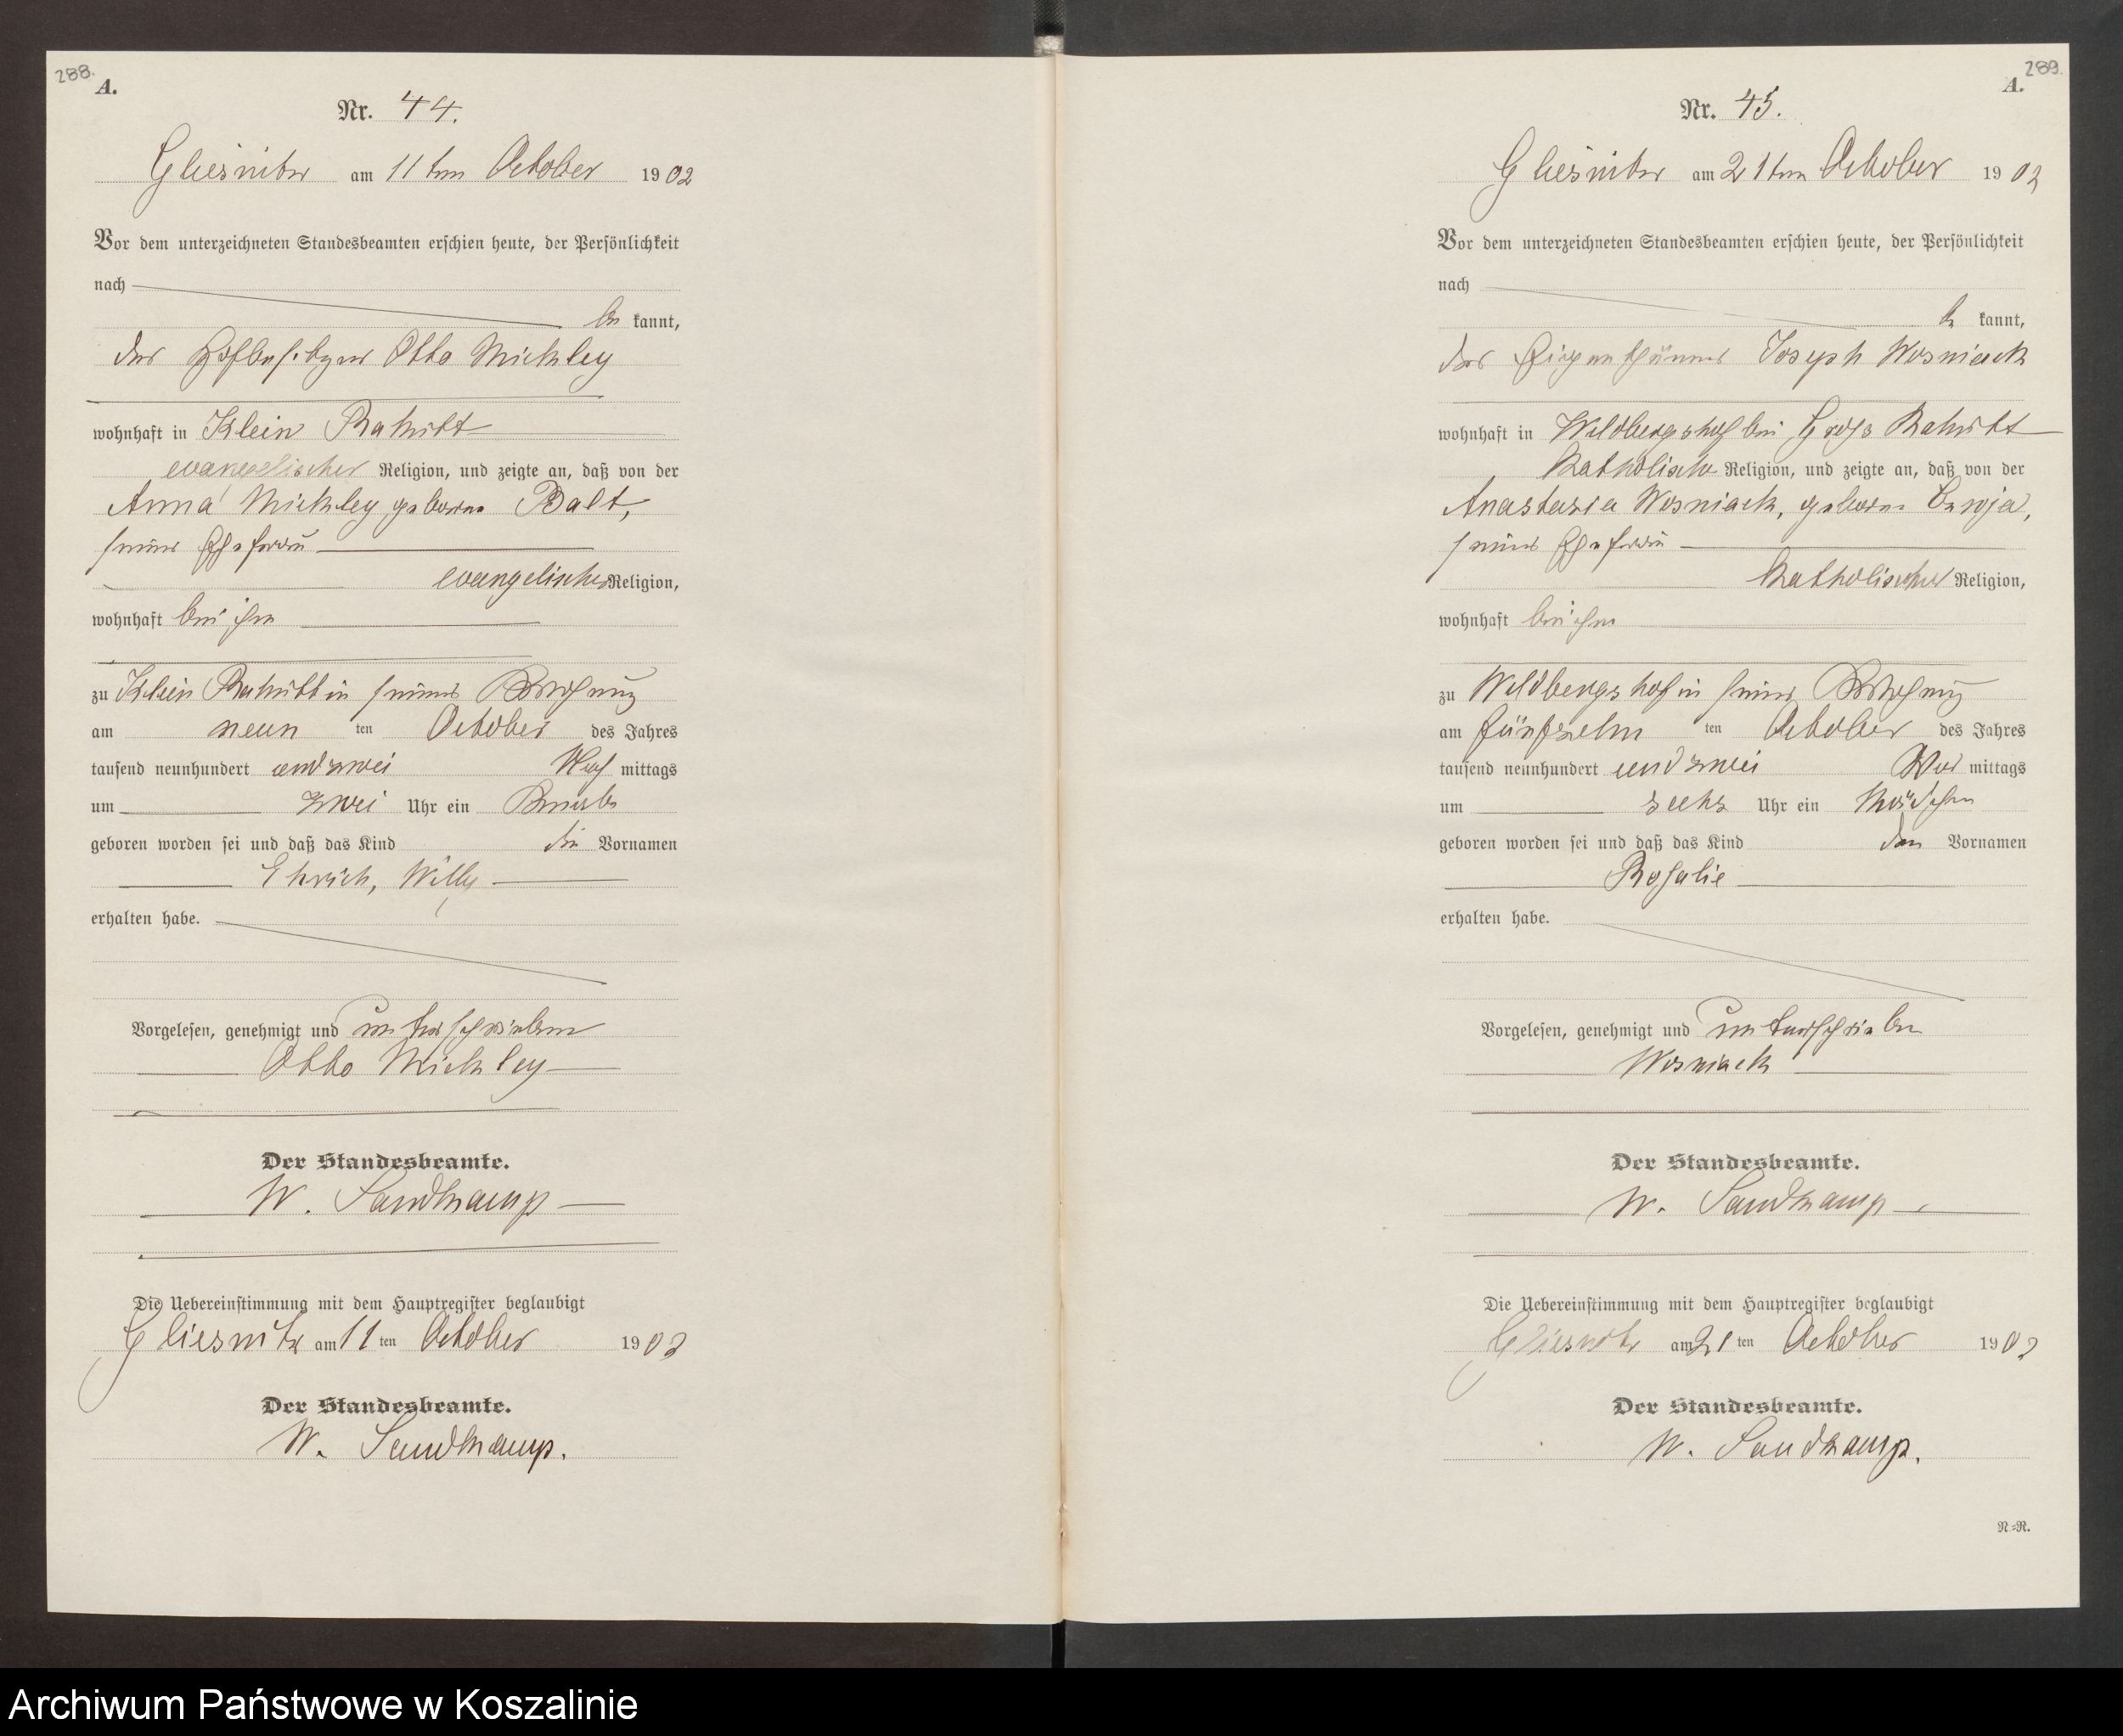 288.
A.
Nr. 44.
Gliesnitz am 11ten October 1902
Vor dem unterzeichneten Standesbeamten erschien heute, der Persönlichkeit
nach
be kannt,
der Hofbesitzer Otto Mickley
wohnhaft in Klein Rakitt
evangelischer Religion, und zeigte an, daß von der
Anna Mickley geborne Balt,
seiner Ehefrau
evangelischer Religion,
wohnhaft bei ihm
zu Klein Rakitt in seiner Wohnung
am neun ten October des Jahres
tausend neunhundert und zwei Nach mittags
um zwei Uhr ein Knabe
geboren worden sei und daß das Kind die Vornamen
Ehrich, Willy
erhalten habe.
Vorgelesen, genehmigt und unterschrieben
Otto Mickley
Der Standesbeamte.
W. Sandkamp
Die Uebereinstimmung mit dem Hauptregister beglaubigt
Gliesnitz am 11 ten October 1902
Der Standesbeamte.
W. Sandkamp.
289.
A.
Nr. 45.
Gliesnitz am 21ten October 1902
Vor dem unterzeichneten Standesbeamten erschien heute, der Persönlichkeit
nach
be kannt,
der Eigenthümer Joseph Wosniack
wohnhaft in Wildbergshof bei Groß Rakitt
katholischer Religion, und zeigte an, daß von der
Anastasia Wosniack, geborne
seiner Ehefrau
katholischer Religion,
wohnhaft bei ihm
zu Wildbergshof in seiner Wohnung
am fünfzehn ten October des Jahres
tausend neunhundert und zwei Vor mittags
um sechs Uhr ein Mädchen
geboren worden sei und daß das Kind den Vornamen
Rosalie
erhalten habe.
Vorgelesen, genehmigt und unterschrieben
Wosniack
Der Standesbeamte.
W. Sandkamp
Die Uebereinstimmung mit dem Hauptregister beglaubigt
Gliesnitz am 21 ten October 1902
Der Standesbeamte.
W. Sandkamp.
N=R.
Archiwum Państwowe w Koszalinie